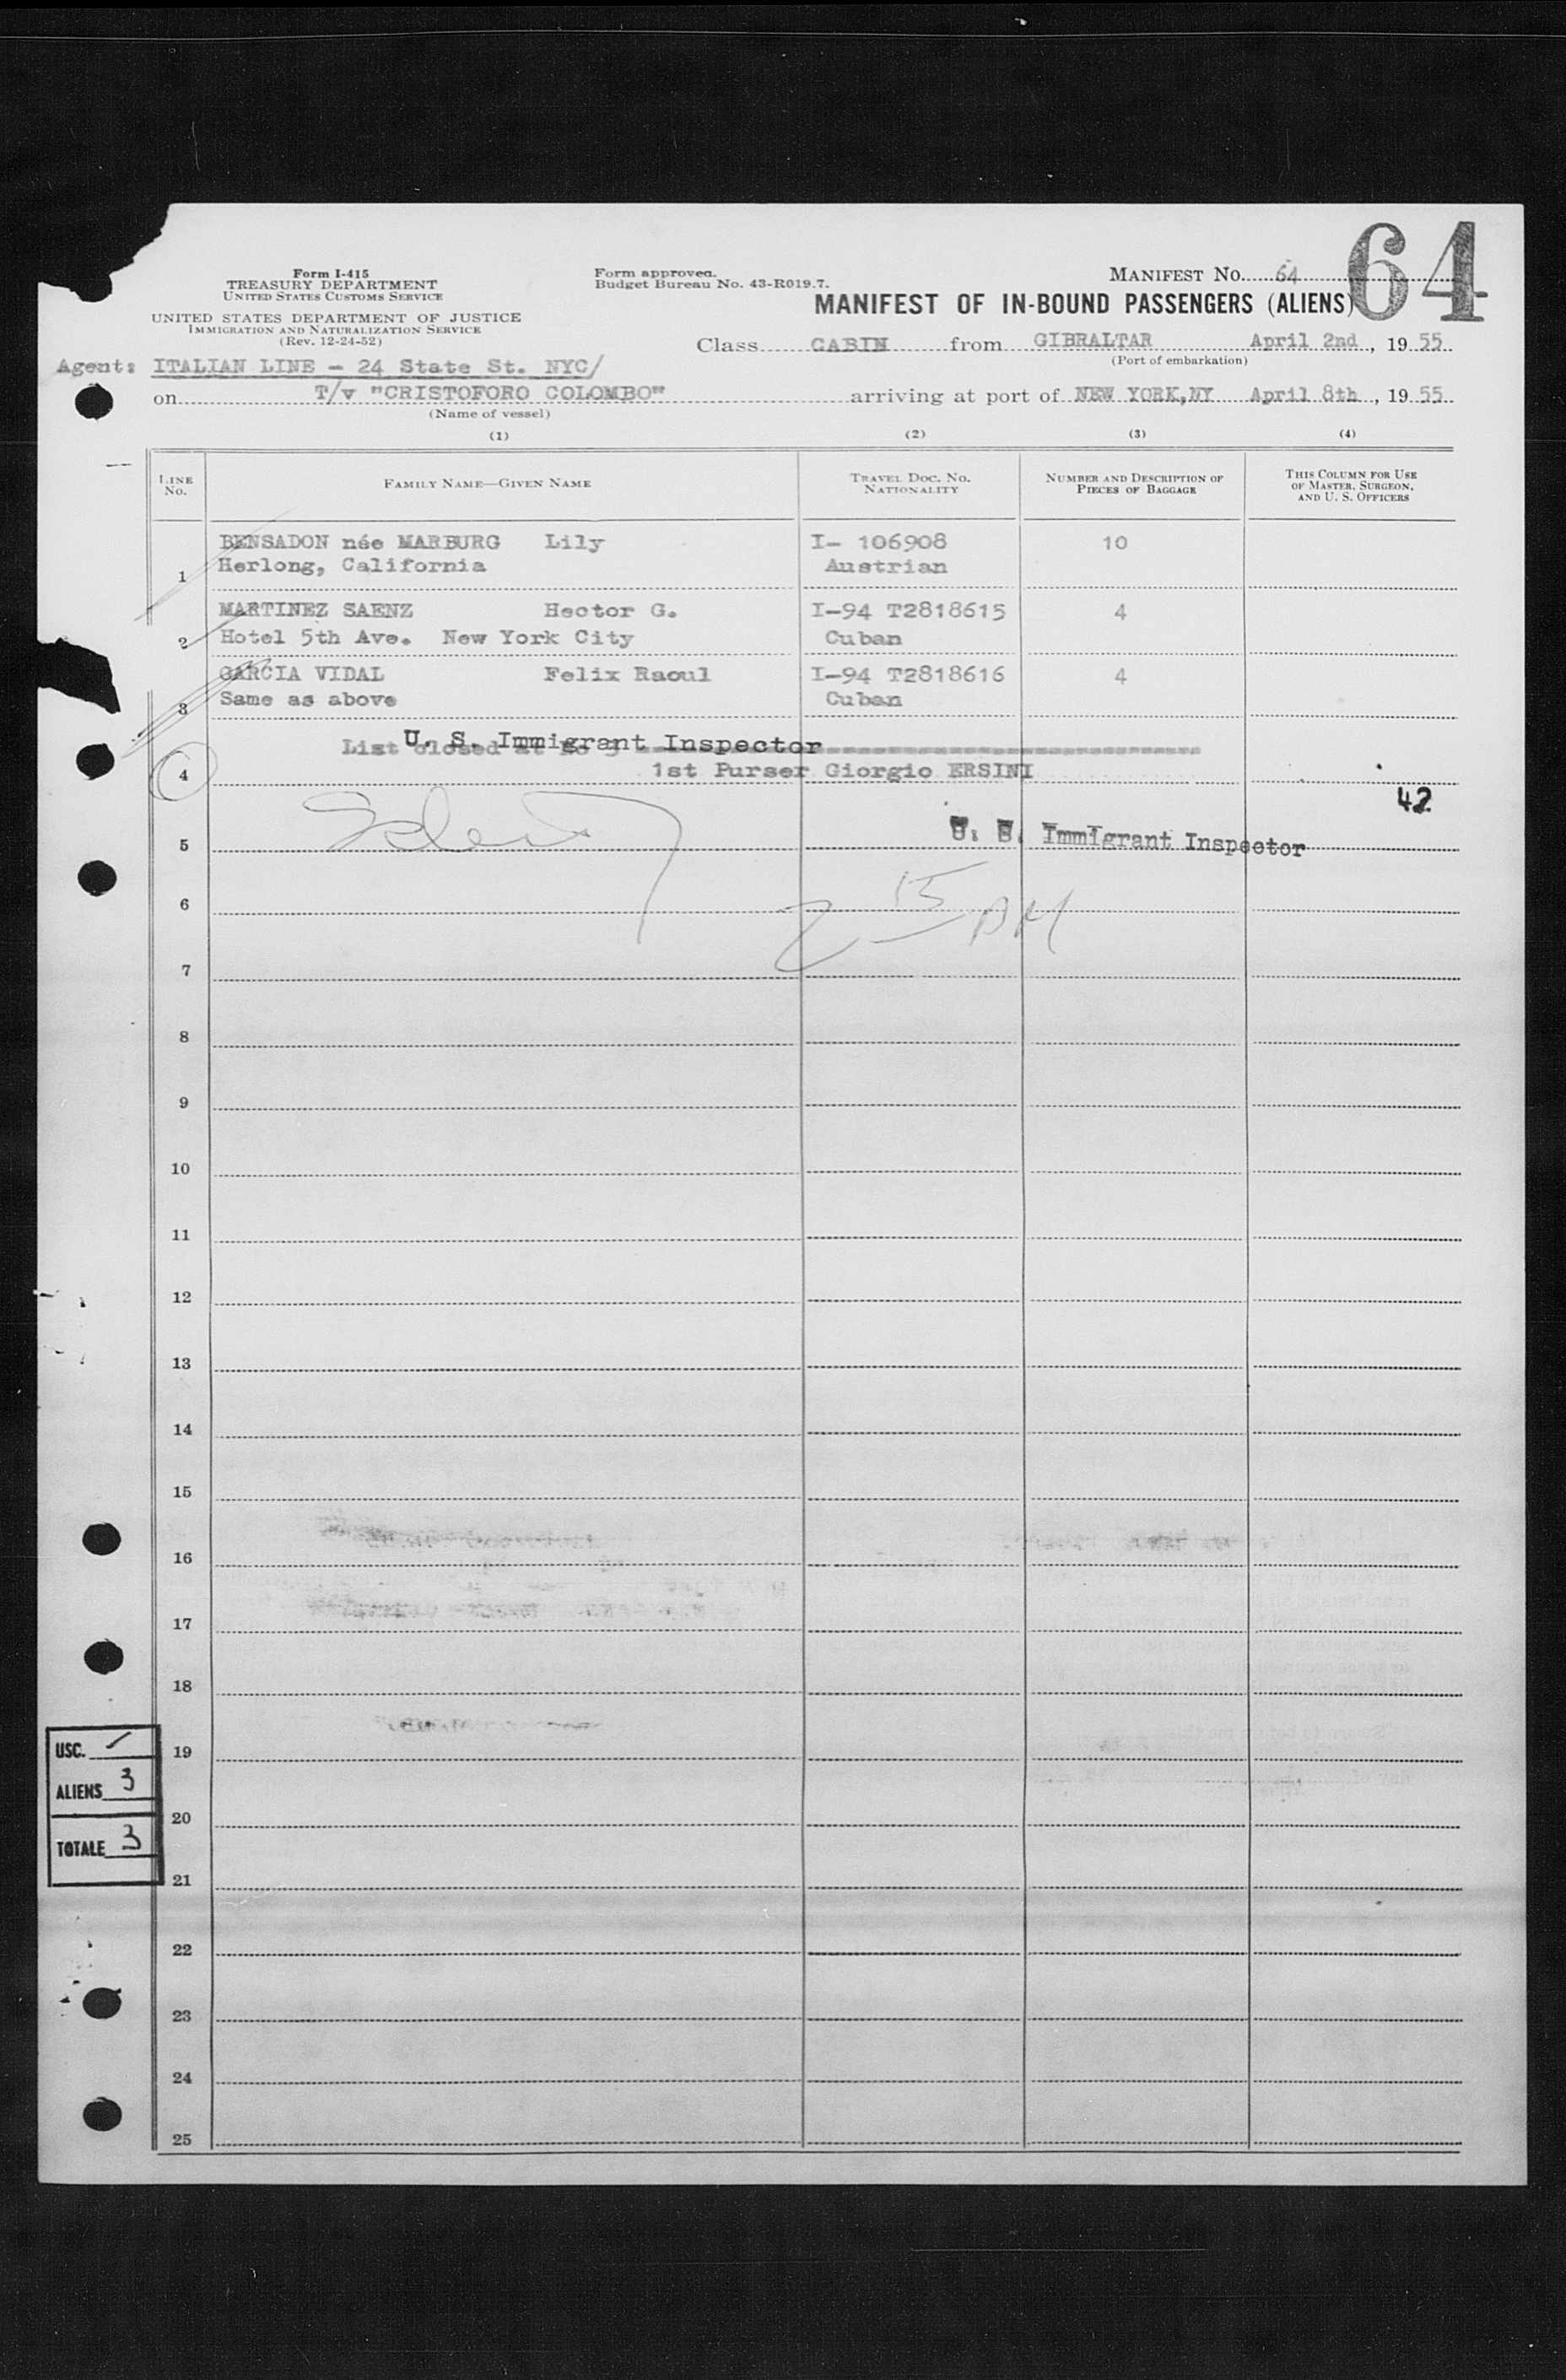 64
Form I-415
TREASURY DEPARTMENT
UNITED STATES CUSTOMS SERVICE
UNITED STATES DEPARTMENT OF JUSTICE
IMMIGRATION AND NATURALIZATION SERVICE
(Rev. 12-24-52)
Form approved.
Budget Bureau No. 43-R019.7.
MANIFEST No. 64
MANIFEST OF IN-BOUND PASSENGERS (ALIENS)
Class CABIN from GIBRALTAR April 2nd, 1955
(Port of embarkation)
Agent: ITALIAN LINE - 24 State St. NYC/
on T/v "CRISTOFORO COLOMBO" arriving at port of NEW YORK, NY April 8th, 1955
(Name of vessel)
(1) (2) (3) (4)
LINE No. FAMILY NAME—GIVEN NAME TRAVEL DOC. NO. NATIONALITY NUMBER AND DESCRIPTION OF PIECES OF BAGGAGE THIS COLUMN FOR USE OF MASTER, SURGEON, AND U. S. OFFICERS
BENSADON née MARBURG Lily I- 106908 10
1 Herlong, California Austrian
MARTINEZ SAENZ Hector G. I-94 T2818615 4
2 Hotel 5th Ave. New York City Cuban
GARCIA VIDAL Felix Raoul I-94 T2818616 4
3 Same as above Cuban
U. S. Immigrant Inspector
List closed at No 3
4 1st Purser Giorgio ERSINI
42
5 U. S. Immigrant Inspector
6 2 15 AM
7
8
9
10
11
12
13
14
15
16
17
18
19
20
21
22
23
24
25
USC.
ALIENS 3
TOTALE 3